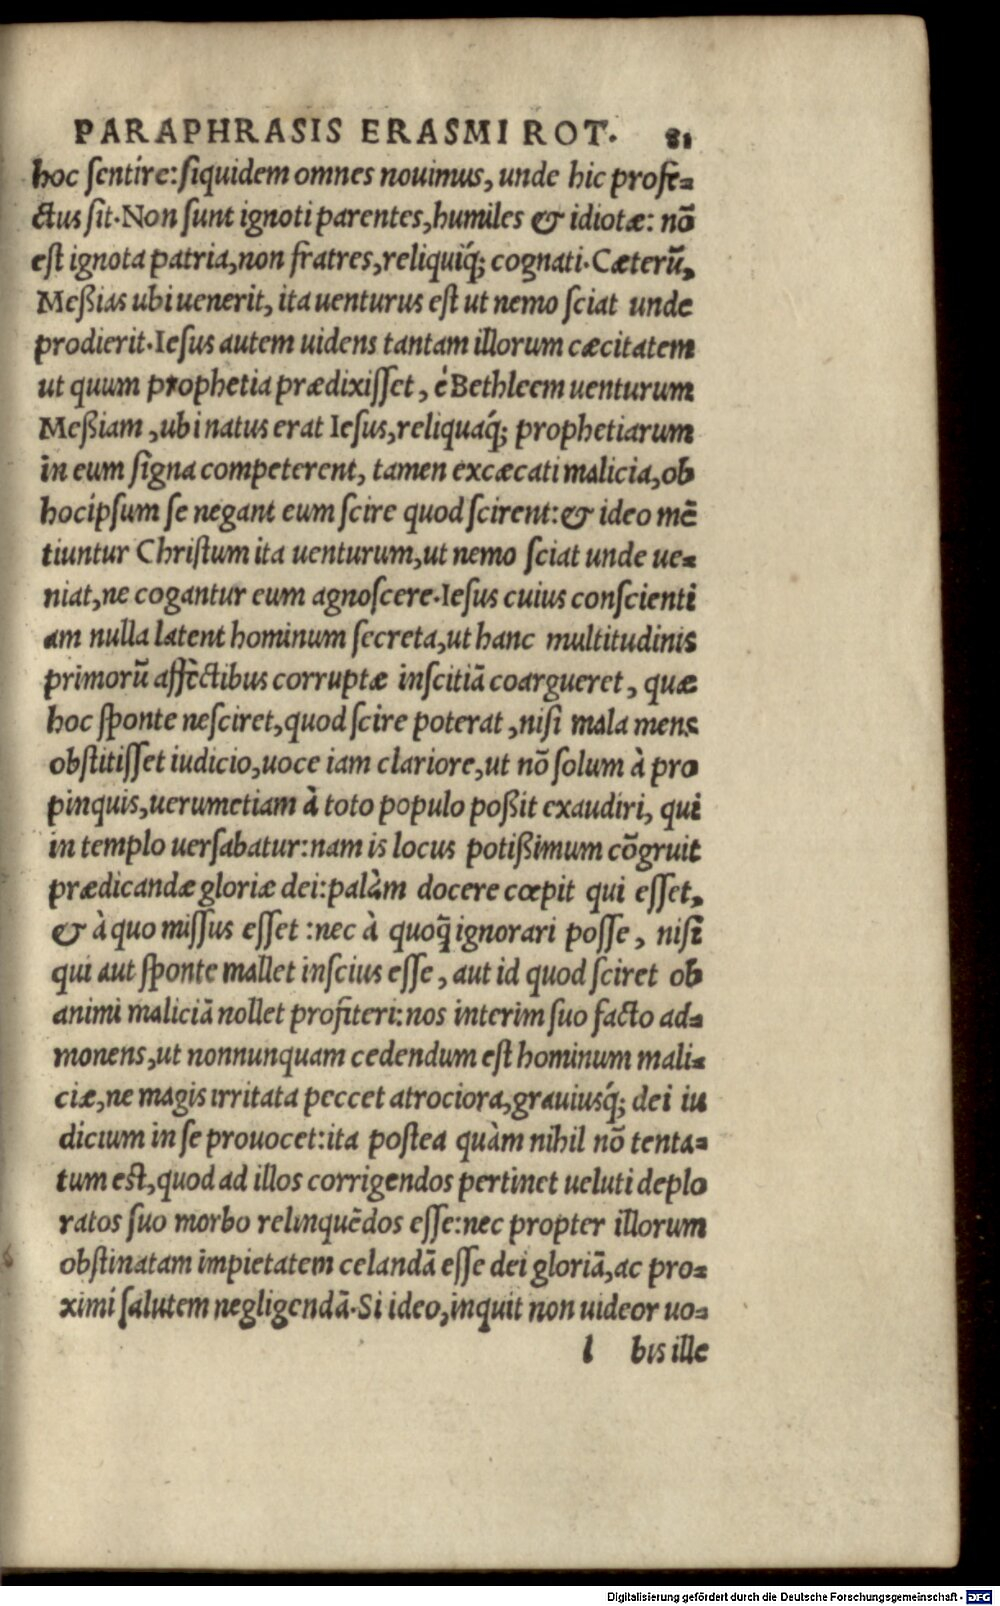 PARAPHRASIS ERASMI ROT. 81
hoc ſentíre:ſiquidem omnes nouimus, unde hic profe⸗
ctus ſit. Non ſunt ignoti parentes, humiles & idiotæ: nõ
eſt ignota patria, non fratres, reliquiq́; cognati. Cæterũ,
Meßias ubi uenerit, ita uenturus eſt ut nemo ſciat unde
prodierit. Ieſus autem uidens tantam illorum cæcitatem
ut quum prophetia prædixiſſet, è Bethleem uenturum
Meßiam, ubi natus erat Ieſus, reliquaq́; prophetiarum
in eum ſigna competerent, tamen excæcati malicia, ob
hocipſum ſe negant eum ſcire quod ſcirent: & ideo mẽ
tiuntur Chriſtum ita uenturum, ut nemo ſciat unde ue⸗
niat, ne cogantur eum agnoſcere. Ieſus cuius conſcienti
am nulla latent hominum ſecreta, ut hanc multitudinis
primorũ affectibus corruptæ inſcitiã coargueret, quæ
hoc ſponte neſciret, quod ſcire poterat, niſi mala mens
obſtitiſſet iudicio, uoce iam clariore, ut nõ ſolum à pro
pinquis, uerumetiam à toto populo poßit exaudiri, qui
in templo uerſabatur: nam is locus potißimum cõgruit
prædicandæ gloriæ dei: palàm docere cœpit qui eſſet,
& à quo miſſus eſſet: nec à quoq̃ ignorari poſſe, niſi
qui aut ſponte mallet inſcius eſſe, aut id quod ſciret ob
animi maliciã nollet profiteri: nos interim ſuo facto ad⸗
monens, ut nonnunquam cedendum eſt hominum mali⸗
ciæ, ne magis irritata peccet atrociora, grauiusq́; dei iu
dicium in ſe prouocet: ita poſtea quàm nihil nõ tenta⸗
tum eſt, quod ad illos corrigendos pertinet ueluti deplo
ratos ſuo morbo relinquẽdos eſſe: nec propter illorum
obſtinatam impietatem celandã eſſe dei gloriã, ac pro⸗
ximi ſalutem negligendã. Si ideo, inquit non uideor uo⸗
l bis ille
Digitalisierung gefördert durch die Deutsche Forschungsgemeinschaft - DFG